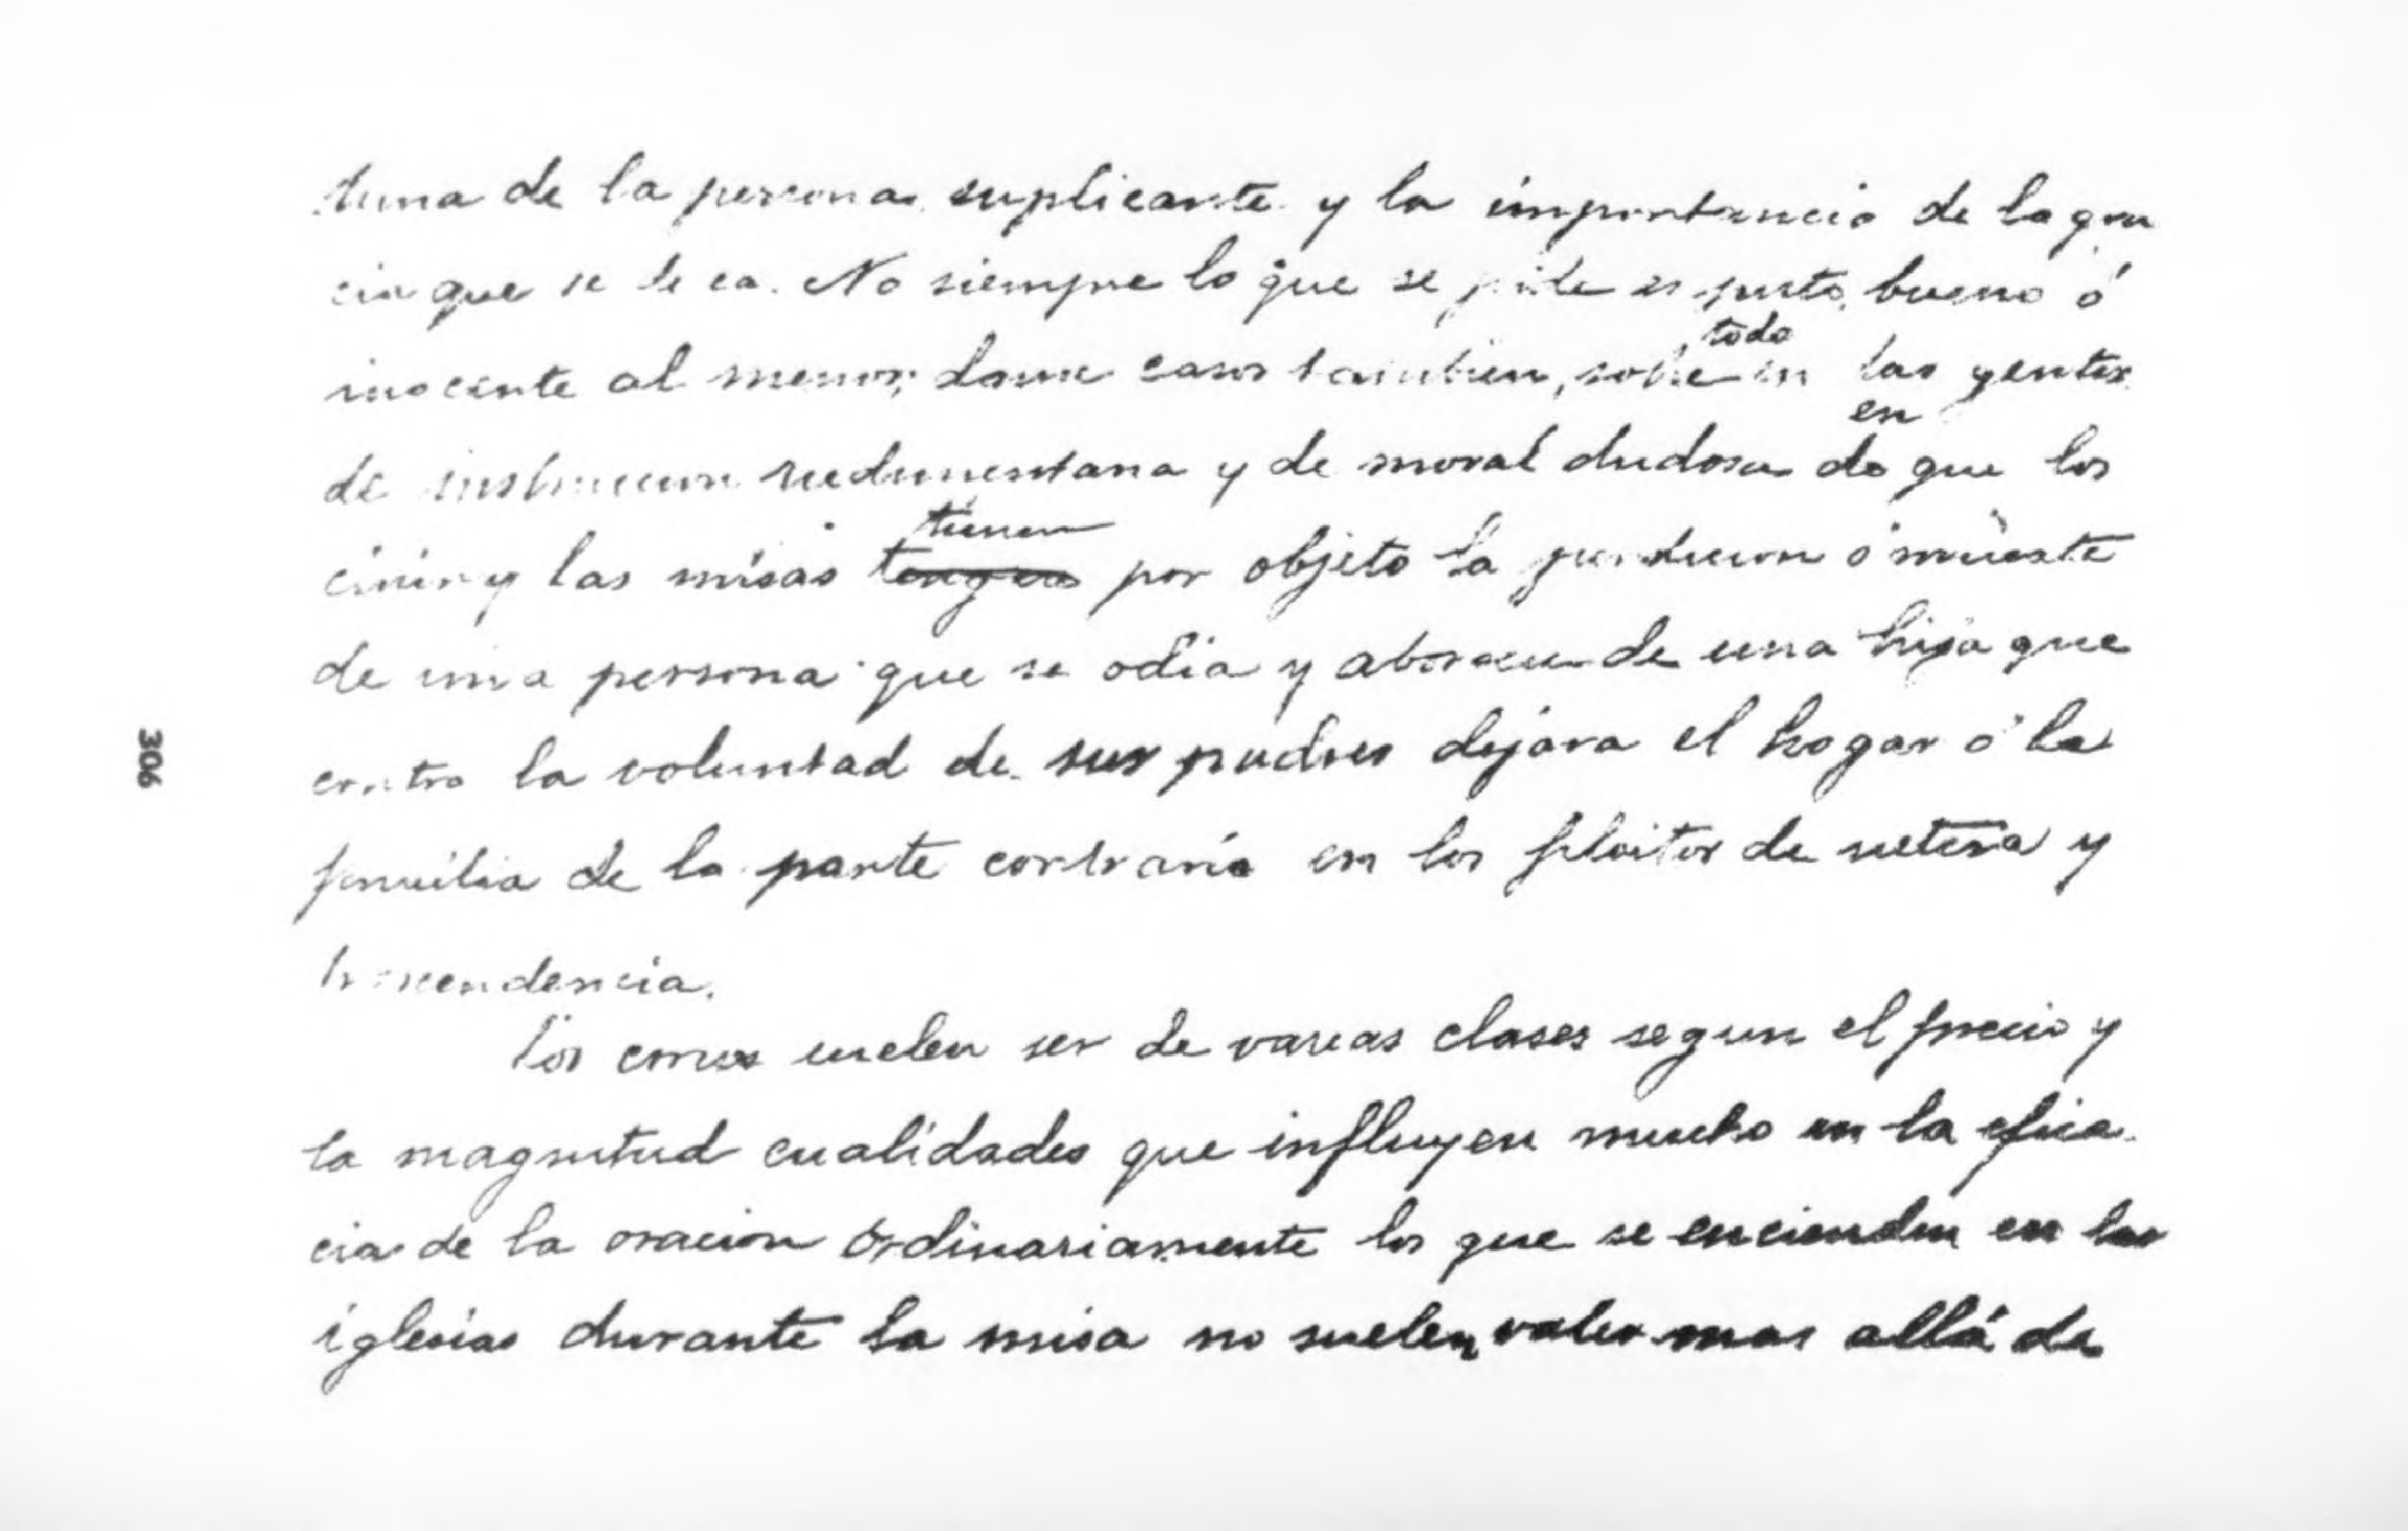 tuna de la persona suplicante y la importancia de la gra
cia que se le ea. No siempre lo que se pide es justo, bueno ó
inocente al menos; danse casos tambien, sobre todo en las gentes
de instruccion rudimentaria y de moral dudosa do en que los
cirios y las misas tengan tienen por objeto la perdicion ó muerte
de una persona que se odia y de una hija que
contra la voluntad de sus padres dejara el hogar ó la
familia de la parte contraria en los pleitos de y
trascendencia.
Los cirios suelen ser de varias clases segun el precio y
la magnitud cualidades que influyen mucho en la efica
cia de la oracion Ordinariamente los que se encienden en las
iglesias durante la misa no suelen valer mas allá de
306